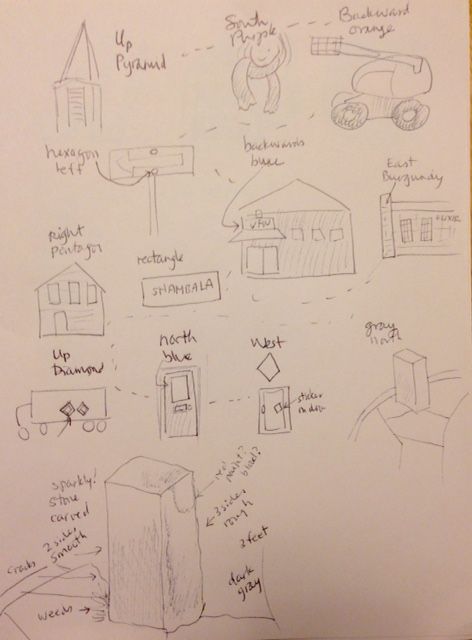 Up
Pyramid
South
Purple
Backward
orange
hexagon
left
backwards
blue
VFW
East
Burgundy
Right
Pentagon
rectangle
SHAMBALA
Up
Diamond
north
blue
West
sticker
gray
north
sparkly!
stone
carved
2 sides
smooth
cracks
weeds
paint?
blood?
3 sides
rough
3 feet
dark
gray